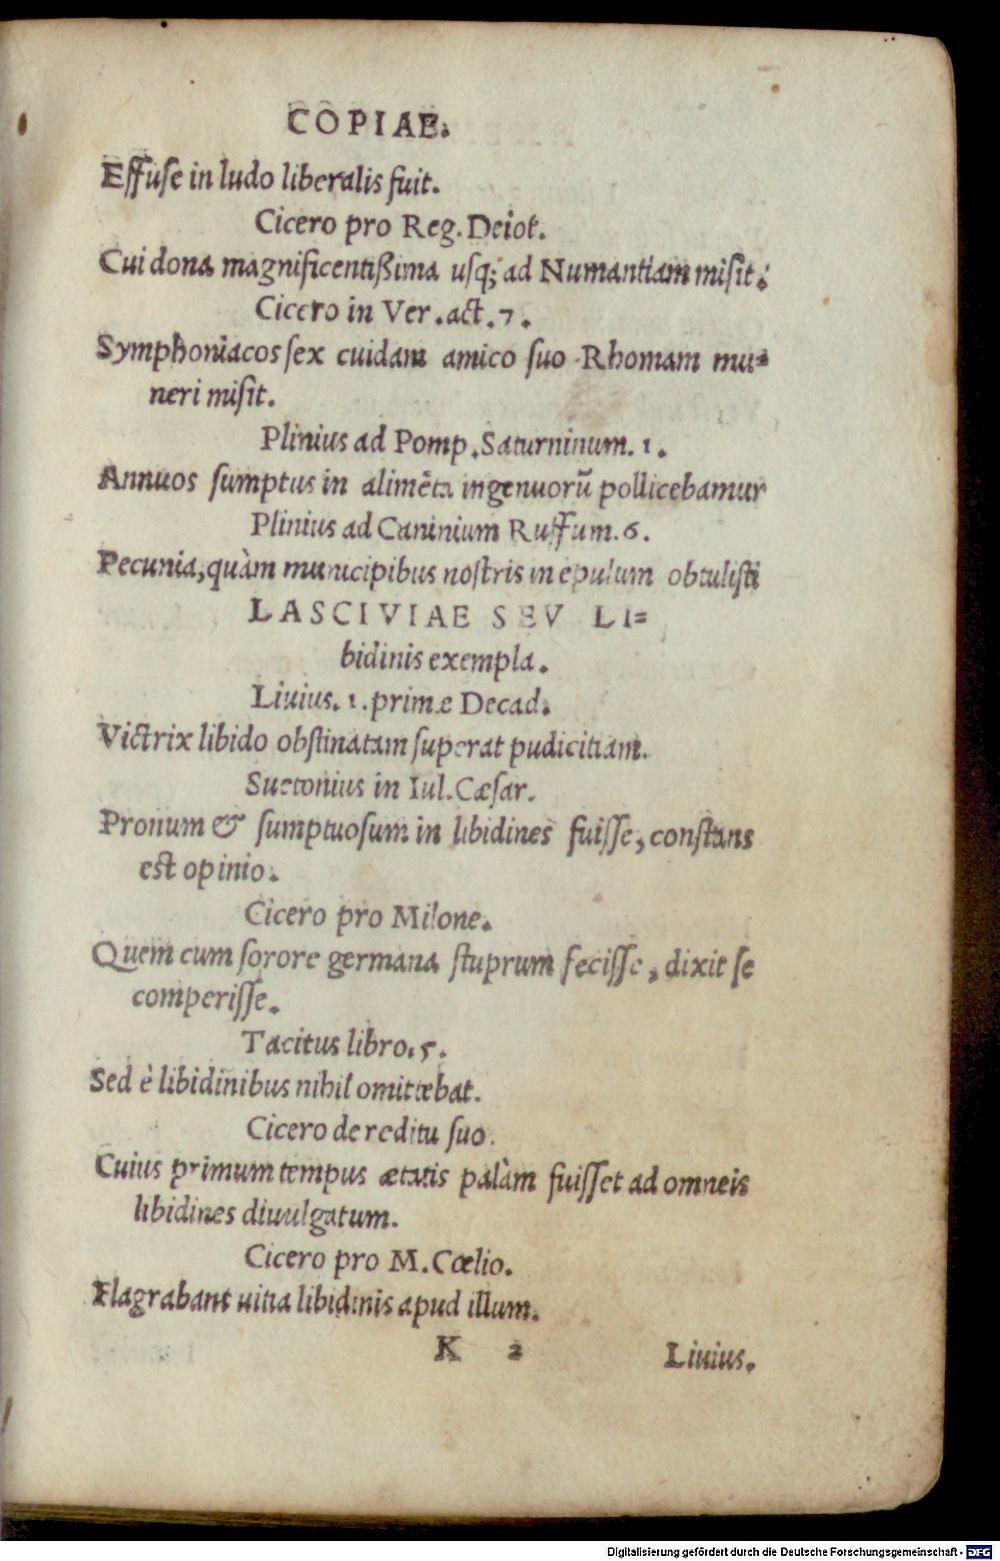 COPIAE.
Effuse in ludo liberalis fuit.
Cicero pro Reg. Deiot.
Cui dona magnificentißima usq; ad Numantiam misit.
Cicero in Ver. act. 7.
Symphoniacos sex cuidam amico suo Rhomam mu=
neri misit.
Plinius ad Pomp. Saturninum. 1.
Annuos sumptus in alimẽta ingenuorũ pollicebamur
Plinius ad Caninium Ruffum. 6.
Pecunia, quàm municipibus nostris in epulum obtulisti
LASCIVIAE SEV LI=
bidinis exempla.
Liuius. 1. primæ Decad.
Victrix libido obstinatam superat pudicitiam.
Suetonius in Iul. Cæsar.
Pronum & sumptuosum in libidines fuisse, constans
est opinio.
Cicero pro Milone.
Quem cum sorore germana stuprum fecisse, dixit se
comperisse.
Tacitus libro. 5.
Sed è libidinibus nihil omittebat.
Cicero de reditu suo.
Cuius primum tempus ætatis palàm fuisset ad omneis
libidines diuulgatum.
Cicero pro M. Cœlio.
Flagrabant uitia libidinis apud illum.
K 2 Liuius.
Digitalisierung gefördert durch die Deutsche Forschungsgemeinschaft - DFG